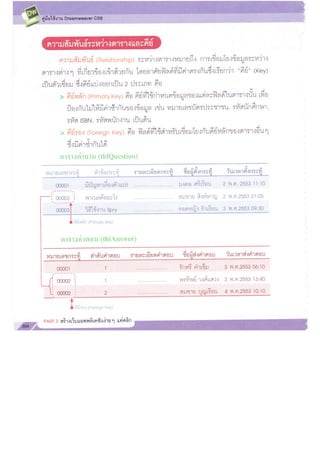 คู่มือใช้งาน Dreamweaver CS5
ความสัมพันธ์ระหว่างตารางและคีย์
ความสัมพันธ์ (Relationship) ระหว่างตารางหมายถึง การเชื่อมโยงข้อมูลระหว่าง
ตารางต่างๆ ที่เกี่ยวข้องเข้าด้วยกัน โดยอาศัยฟิลด์ที่มีค่าตรงกันซึ่งเรียกว่า "คีย์" (Key)
เป็นตัวเชื่อม ซึ่งคีย์แบ่งออกเป็น 2 ประเภท คือ
> คีย์หลัก (Primary Key) คือ คีย์ที่ใช้กำหนดข้อมูลของแต่ละฟิลด์ในตารางนั้น เพื่อ
ป้องกันไม่ให้มีค่าซ้ำกันของข้อมูล เช่น หมายเลขบัตรประชาชน, รหัสนักศึกษา,
รหัส ISBN, รหัสพนักงาน เป็นต้น
> คีย์รอง (Foreign Key) คือ ฟิลด์ที่ใช้สำหรับเชื่อมโยงกับคีย์หลักของตารางอื่นๆ
ซึ่งมีค่าซ้ำกันได้
ตารางคำถาม (tblQuestion)
หมายเลขกระทู้ หัวข้อกระทู้ รายละเอียดกระทู้ ชื่อผู้ตั้งกระทู้ วันเวลาตั้งกระทู้
00001 มีปัญหาเรื่องตัวแปร .................. มงคล ศรีเรือน 2 พ.ค. 2553 11:10
00002 .................. สมชาย 2 พ.ค. 2553 21:25
00003 วิธีใช้งาน Spry .................. 3 พ.ค. 2553 09:30
คีย์หลัก (Primary Key)
ตารางคำตอบ (tblAnswer)
หมายเลขกระทู้ ลำดับคำตอบ รายละเอียดคำตอบ ชื่อผู้ส่งคำตอบ วันเวลาส่งคำตอบ
00001 1 .................. 3 พ.ค. 2553 06:10
00002 1 .................. 3 พ.ค. 2553 13:40
00002 2 .................. สมชาย บุญเรือน 4 พ.ค. 2553 10:10
คีย์รอง (Foreign Key)
PART 3 สร้างเว็บแอพพลิเคชันง่ายๆ แค่คลิก